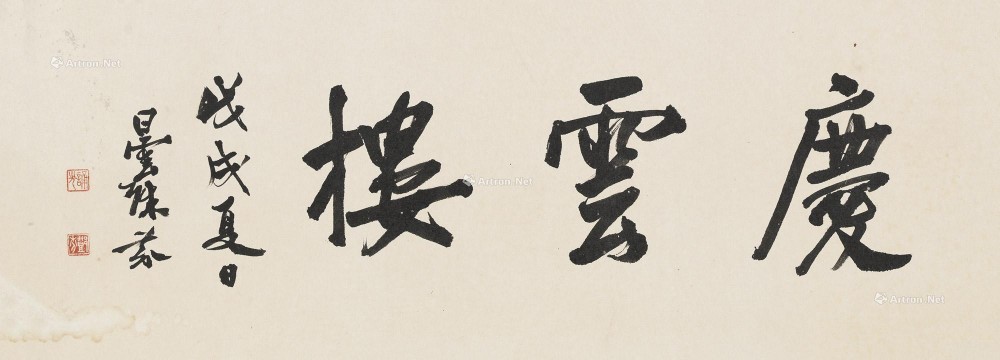 慶雲樓
戊戌夏日
曇
Artron.Net
Artron.Net
Artron.Net